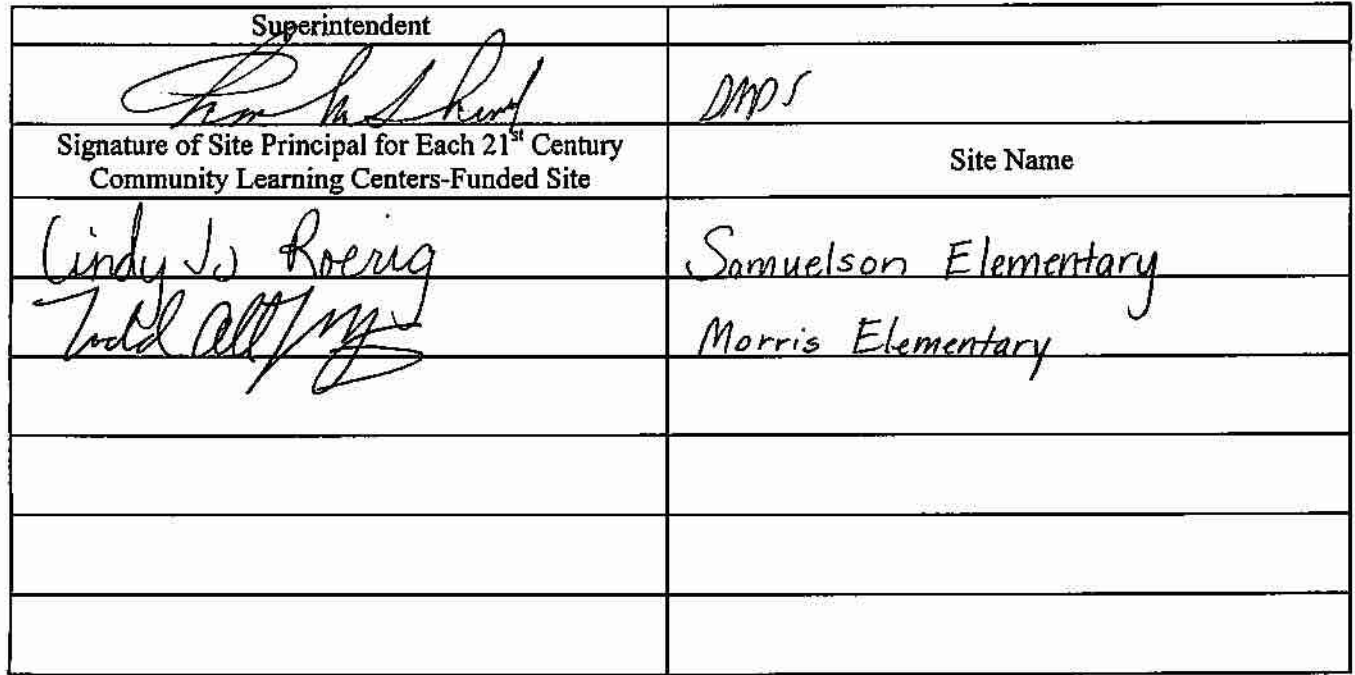 Superintendent
DMPS
Signature of Site Principal for Each 21st Century
Community Learning Centers-Funded Site
Site Name
Cindy Jo Roerig
Samuelson Elementary
Todd
Morris Elementary